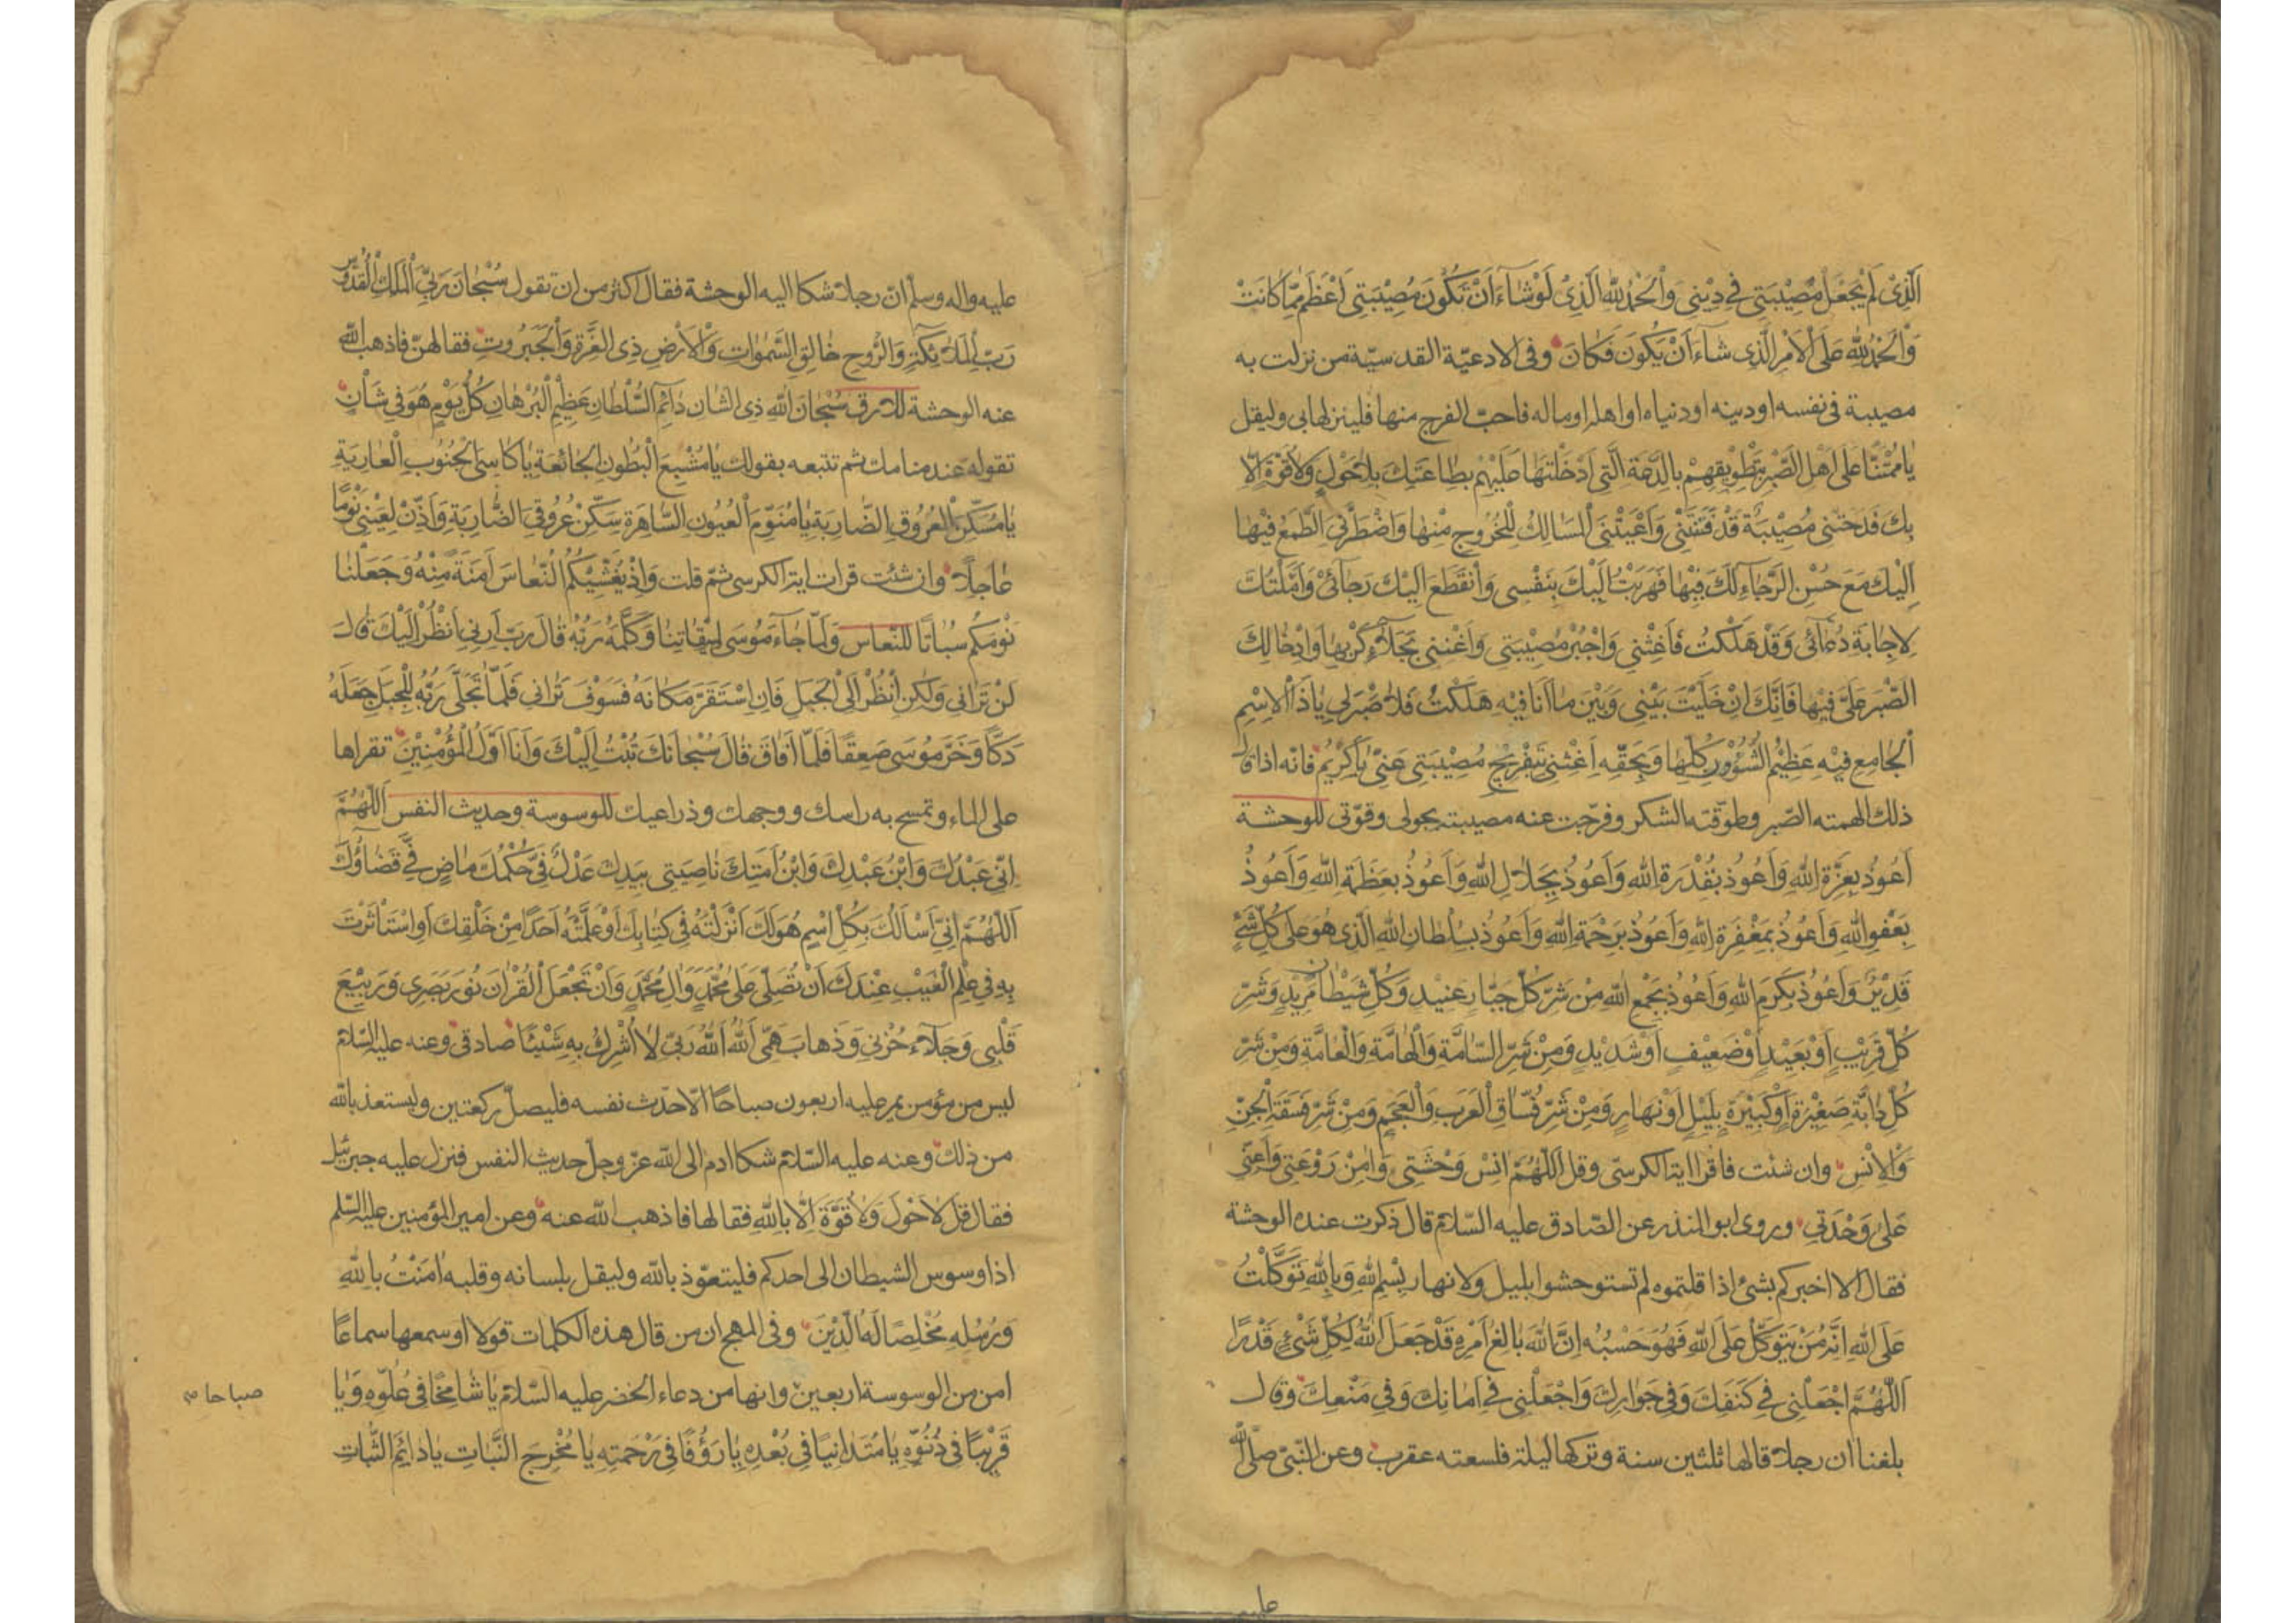 اَلَّذِى لَمْ يَجْعَلْ مُصِيْبَتِى فِى دِيْنِى وَالْحَمْدُ لِلّٰهِ الَّذِىْ لَوْ شَآءَ اَنْ تَكُوْنَ مُصِيْبَتِى اَعْظَمَ مِمَّا كَانَتْ
وَالْحَمْدُ لِلّٰهِ عَلَى الْاَمْرِ الَّذِى شَآءَ اَنْ يَكُونَ فَكَانَ وفى الادعيّة القدسيّة من نزلت به
مصيبة فى نفسه او دينه او دنياه او اهله او ماله فاحبّ الفرج منها فلينزلها بى وليقل
يَا مُمْتَنًّا عَلَى اَهْلِ الصَّبْرِ بِتَطْوِيْقِهِمْ بِالدَّعَةِ الَّتِى اَدْخَلْتَهَا عَلَيْهِمْ بِطَاعَتِكَ بِلَا حَوْلٍ وَلَا قُوَّةَ اِلَّا
بِكَ فَدَحَتْنِى مُصِيْبَةٌ قَدْ فَتَنَتْنِى وَاَعْيَتْنِىَ الْمَسَالِكُ لِلْخُرُوجِ مِنْهَا وَاضْطَرَّنِىَ الطَّمَعُ فِيْهَا
اِلَيْكَ مَعَ حُسْنِ الرَّجَاءِ لَكَ فِيْهَا فَهَرَبْتُ اِلَيْكَ بِنَفْسِى وَانْقَطَعَ اِلَيْكَ رَجَائِىْ وَاَمَّلْتُكَ
لِاِجَابَةِ دُعَآئِى وَقَدْ هَلَكْتُ فَاَغِثْنِى وَاجْبُرْ مُصِيْبَتِى وَاَغِثْنِى بِجَلَآءِ كَرْبِهَا وَاِدْخَالِكَ
الصَّبْرَ عَلَىَّ فِيْهَا فَاِنَّكَ اِنْ خَلَّيْتَ بَيْنِى وَبَيْنَ مَا اَنَا فِيْهِ هَلَكْتُ فَلَا صَبْرَ لِى يَا ذَا الْاِسْمِ
الْجَامِعِ فِيْهِ عَظِيْمُ الشُّؤُوْنِ كُلِّهَا وَبِحَقِّهِ اَغِثْنِى بِتَفْرِيْجِ مُصِيْبَتِى عَنِّى يَا كَرِيْمُ فانه اذا قال
ذلك الهمته الصّبر وطوّقته الشكر وفرّجت عنه مصيبته بحولى وقوّتى للوحشة
اَعُوْذُ بِعِزَّةِ اللهِ وَاَعُوذُ بِقُدْرَةِ اللهِ وَاَعُوذُ بِجَلَالِ اللهِ وَاَعُوذُ بِعَظَمَةِ اللهِ وَاَعُوذُ
بِعَفْوِ اللهِ وَاَعُوذُ بِمَغْفِرَةِ اللهِ وَاَعُوذُ بِرَحْمَةِ اللهِ وَاَعُوذُ بِسُلْطَانِ اللهِ الَّذِى هُوَ عَلَى كُلِّ شَىْءٍ
قَدِيْرٌ وَاَعُوْذُ بِكَرَمِ اللهِ وَاَعُوذُ بِجَمْعِ اللهِ مِنْ شَرِّ كُلِّ جَبَّارٍ عَنِيْدٍ وَكُلِّ شَيْطَانٍ مَرِيْدٍ وَشَرِّ
كُلِّ قَرِيْبٍ اَوْ بَعِيْدٍ اَوْ ضَعِيْفٍ اَوْ شَدِيْدٍ وَمِنْ شَرِّ السَّامَّةِ وَالْهَامَّةِ وَالْعَامَّةِ وَمِنْ شَرِّ
كُلِّ دَابَّةٍ صَغِيْرَةٍ اَوْ كَبِيْرَةٍ بِلَيْلٍ اَوْ نَهَارٍ وَمِنْ شَرِّ فُسَّاقِ الْعَرَبِ وَالْعَجَمِ وَمِنْ شَرِّ فَسَقَةِ الْجِنِّ
وَالْاِنْسِ وان شئت فاقرا اية الكرسىّ وقل اَللّٰهُمَّ اٰنِسْ وَحْشَتِى وَاٰمِنْ رَوْعَتِى وَاَعِنِّى
عَلَى وَحْدَتِى وروى ابو المنذر عن الصّادق عليه السّلام قال ذكرت عنده الوحشة
فقال الا اخبركم بشئ اذا قلتموه لم تستوحشوا بليل ولا نهار بِسْمِ اللهِ وَبِاللهِ تَوَكَّلْتُ
عَلَى اللهِ اِنَّهُ مَنْ يَتَوَكَّلْ عَلَى اللهِ فَهُوَ حَسْبُهُ اِنَّ اللهَ بَالِغُ اَمْرِهِ قَدْ جَعَلَ اللهُ لِكُلِّ شَىْءٍ قَدْرًا
اَللّٰهُمَّ اجْعَلْنِى فِى كَنَفِكَ وَفِى جَوَارِكَ وَاجْعَلْنِى فِى اَمَانِكَ وَفِى مَنْعِكَ وقال
بلغنا ان رجلا قالها ثلثين سنة وتركها ليلة فلسعته عقرب وعن النّبىّ صلّى الله
عليه
عليه واله وسلم انّ رجلا شكا اليه الوحشة فقال اكثر من ان تقول سُبْحَانَ رَبِّىَ الْمَلِكِ الْقُدُّوسِ
رَبِّ الْمَلٰٓئِكَةِ وَالرُّوحِ خَالِقِ السَّمٰوَاتِ وَالْاَرْضِ ذِى الْعِزَّةِ وَالْجَبَرُوتِ فقالهنّ فاذهب الله
عنه الوحشة للارق سُبْحَانَ اللهِ ذِى الشَّانِ دَائِمِ السُّلْطَانِ عَظِيْمِ الْبُرْهَانِ كُلَّ يَوْمٍ هُوَ فِى شَأْنٍ
تقوله عند منامك ثم تتبعه بقولك يَا مُشْبِعَ الْبُطُونِ الْجَائِعَةِ يَا كَاسِىَ الْجُنُوبِ الْعَارِيَةِ
يَا مُسَكِّنَ الْعُرُوقِ الضَّارِبَةِ يَا مُنَوِّمَ الْعُيُونِ السَّاهِرَةِ سَكِّنْ عُرُوقِىَ الضَّارِبَةِ وَاَذِّنْ لِعَيْنِى نَوْمًا
عَاجِلًا وان شئت قرات اية الكرسى ثمّ قلت وَاِذْ يُغَشِّيْكُمُ النُّعَاسَ اَمَنَةً مِنْهُ وَجَعَلْنَا
نَوْمَكُمْ سُبَاتًا للنّعاس وَلَمَّا جَآءَ مُوسَى لِمِيْقَاتِنَا وَكَلَّمَهُ رَبُّهُ قَالَ رَبِّ اَرِنِى اَنْظُرْ اِلَيْكَ قَالَ
لَنْ تَرَانِى وَلٰكِنِ انْظُرْ اِلَى الْجَبَلِ فَاِنِ اسْتَقَرَّ مَكَانَهُ فَسَوْفَ تَرَانِى فَلَمَّا تَجَلَّى رَبُّهُ لِلْجَبَلِ جَعَلَهُ
دَكًّا وَخَرَّ مُوسَى صَعِقًا فَلَمَّا اَفَاقَ قَالَ سُبْحَانَكَ تُبْتُ اِلَيْكَ وَاَنَا اَوَّلُ الْمُؤْمِنِيْنَ تقراها
على الماء وتمسح به راسك ووجهك وذراعيك للوسوسة وحديث النفس اَللّٰهُمَّ
اِنِّى عَبْدُكَ وَابْنُ عَبْدِكَ وَابْنُ اَمَتِكَ نَاصِيَتِى بِيَدِكَ عَدْلٌ فِىَّ حُكْمُكَ مَاضٍ فِىَّ قَضَاؤُكَ
اَللّٰهُمَّ اِنِّى اَسْاَلُكَ بِكُلِّ اسْمٍ هُوَ لَكَ اَنْزَلْتَهُ فِى كِتَابِكَ اَوْ عَلَّمْتَهُ اَحَدًا مِنْ خَلْقِكَ اَوِ اسْتَاْثَرْتَ
بِهِ فِى عِلْمِ الْغَيْبِ عِنْدَكَ اَنْ تُصَلِّىَ عَلَى مُحَمَّدٍ وَاٰلِ مُحَمَّدٍ وَاَنْ تَجْعَلَ الْقُرْاٰنَ نُورَ بَصَرِى وَرَبِيْعَ
قَلْبِى وَجَلَآءَ حُزْنِى وَذَهَابَ هَمِّى اَللهُ اَللهُ رَبِّى لَا اُشْرِكُ بِهِ شَيْئًا صادقى وعنه عليه السّلام
ليس من مؤمن يمر عليه اربعون صباحا الا حدّث نفسه فليصلّ ركعتين وليستعذ بالله
من ذلك وعنه عليه السّلام شكا ادم الى الله عزّ وجلّ حديث النفس فنزل عليه جبرئيل
فقال قل لَا حَوْلَ وَلَا قُوَّةَ اِلَّا بِاللهِ فقالها فاذهب الله عنه وعن امير المؤمنين عليه السّلم
اذا وسوس الشيطان الى احدكم فليتعوّذ بالله وليقل بلسانه وقلبه اٰمَنْتُ بِاللهِ
وَرُسُلِهِ مُخْلِصًا لَهُ الدِّيْنَ وفى المهج ان من قال هذه الكلمات قولا او سمعها سماعا
امن من الوسوسة اربعين وانها من دعاء الخضر عليه السّلام يَا شَامِخًا فِى عُلُوِّهِ وَيَا
صباحا م
قَرِيْبًا فِى دُنُوِّهِ يَا مُتَدَانِيًا فِى بُعْدِهِ يَا رَؤُفًا فِى رَحْمَتِهِ يَا مُخْرِجَ النَّبَاتِ يَا دَائِمَ الثَّبَاتِ